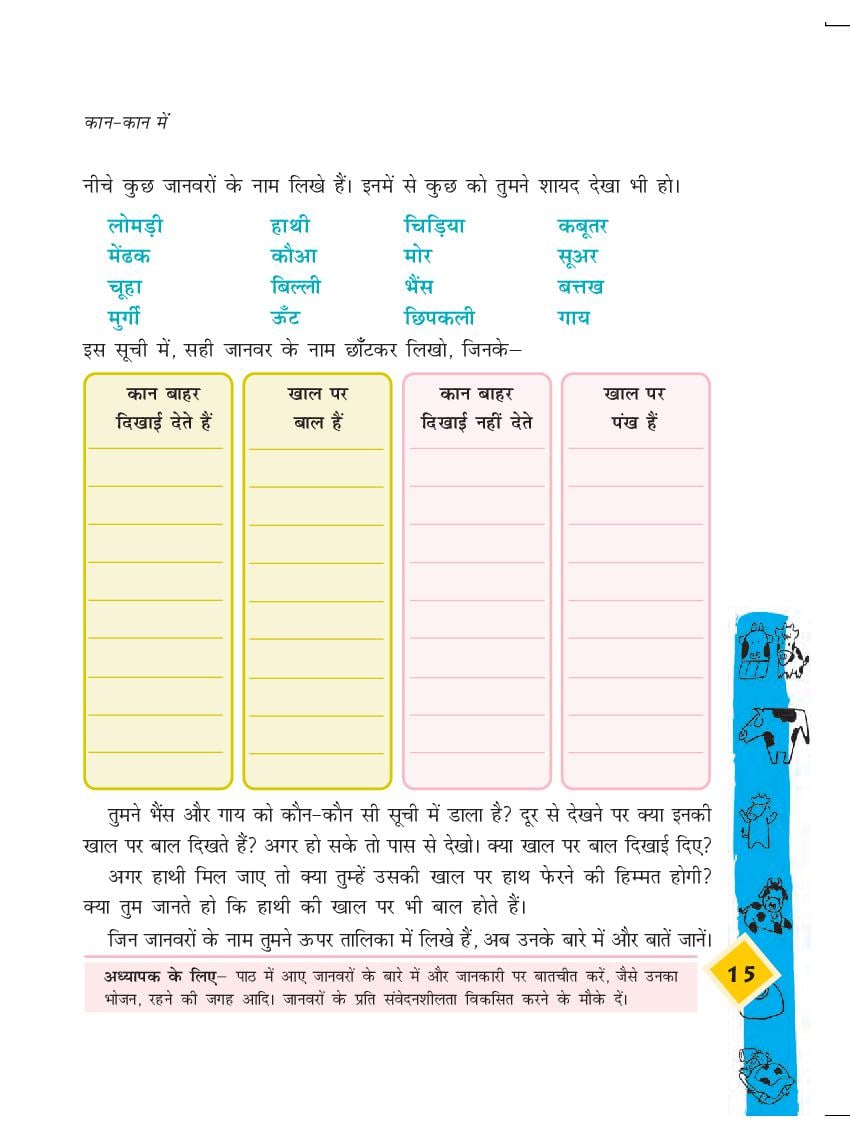 कान-कान में
नीचे कुछ जानवरों के नाम लिखे हैं। इनमें से कुछ को तुमने शायद देखा भी हो।
लोमड़ी हाथी चिड़िया कबूतर
मेंढक कौआ मोर सूअर
चूहा बिल्ली भैंस बत्तख
मुर्गी ऊँट छिपकली गाय
इस सूची में, सही जानवर के नाम छाँटकर लिखो, जिनके–
कान बाहर
दिखाई देते हैं
खाल पर
बाल हैं
कान बाहर
दिखाई नहीं देते
खाल पर
पंख हैं
तुमने भैंस और गाय को कौन-कौन सी सूची में डाला है? दूर से देखने पर क्या इनकी
खाल पर बाल दिखते हैं? अगर हो सके तो पास से देखो। क्या खाल पर बाल दिखाई दिए?
अगर हाथी मिल जाए तो क्या तुम्हें उसकी खाल पर हाथ फेरने की हिम्मत होगी?
क्या तुम जानते हो कि हाथी की खाल पर भी बाल होते हैं।
जिन जानवरों के नाम तुमने ऊपर तालिका में लिखे हैं, अब उनके बारे में और बातें जानें।
अध्यापक के लिए– पाठ में आए जानवरों के बारे में और जानकारी पर बातचीत करें, जैसे उनका
भोजन, रहने की जगह आदि। जानवरों के प्रति संवेदनशीलता विकसित करने के मौके दें।
15